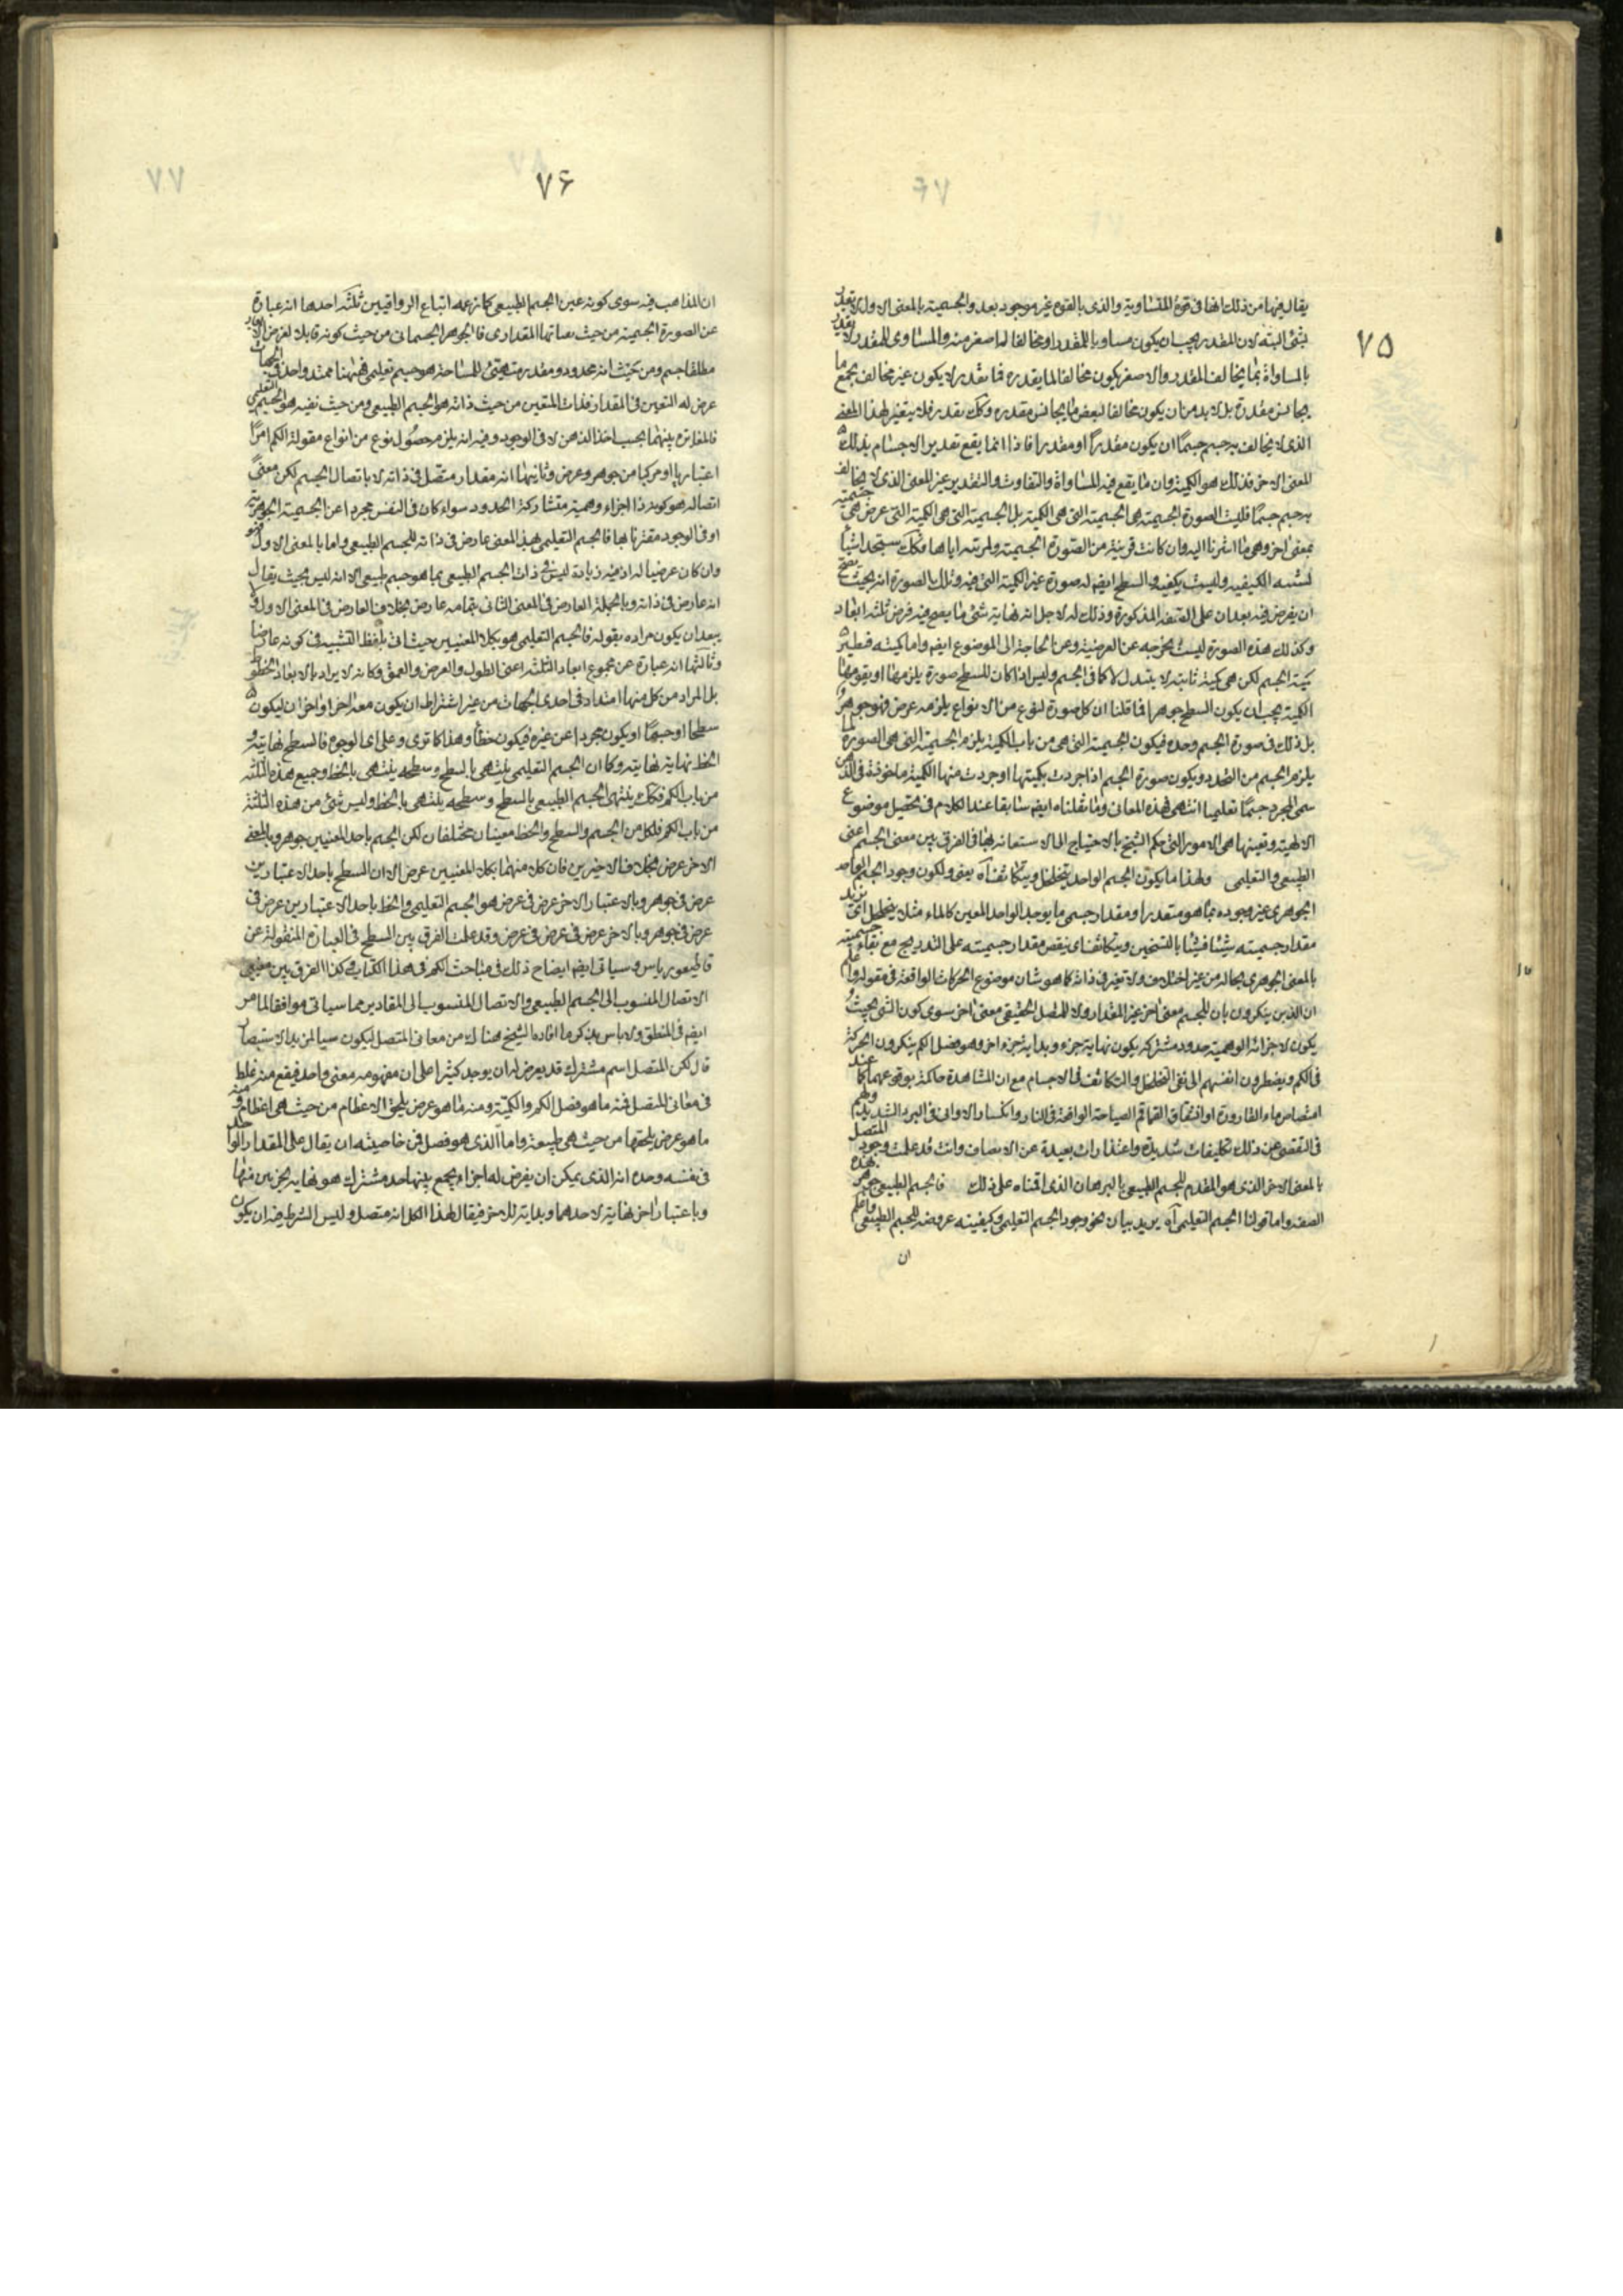 ٧٥
يقال فيها من ذلك انها فى قوة المتساوية والذى بالقوة غير موجود بعد والجسمية بالمعنى الاول لا تقدر
بشئ البتة لان المقدر يجب ان يكون مساويا للمقدر او مخالفا له اصغر منه والمساوى للمقدر لا يقدر
بالمساواة بما يخالف المقدر والاصغر يكون مخالفا لما يقدره فما يقدر لا يكون غير مخالف بجمع ما
يجانس مقدرة بل لا بد من ان يكون مخالفا لبعض ما يجانس مقدره وكك يقدر فلا يتغير لهذا المعنى
الذى لا يخالف به جسم جسمًا ان يكون مقدرًا او مقدرا فاذا انما يقع تقدير الاجسام بذلك
المعنى الاخر فذلك هو الكمية وان ما يقع فيه المساواة والتفاوت والتقدير غير المعنى الذى لا يخالف
به جسم جسمًا فليست الصورة الجسمية هى الجسمية التى هى الكمية بل الجسمية التى هى الكمية التى عرض هى جسمية
بمعنى اخر وهى ما اشرنا اليه وان كانت قرينة من الصورة الجسمية ولزمته اياها وكك ستجد اشيا
لشبه الكيفية وليست بكيفية والسطح ايضا له صورة غير الكمية التى فيه وتلك الصورة انه بحيث يصح
ان يفرض فيه بعدان على الصفة المذكورة وذلك له لاجل انه نهاية شئ ما يصح فيه فرض ثلثة ابعاد
وكذلك هذه الصورة ليست بخرجه عن العرضية وعن الحاجة الى الموضوع ايضا واما كميته فنظير
كمية الجسم لكن هى كمية ثابتة لا يتبدل لا كما فى الجسم وليس اذا كان للسطح صورة يلزمها او يقومها
الكمية يجب ان يكون السطح جوهرا فما قلنا ان كل صورة لنوع من الانواع يلزمه عرض فهو جوهر
بل ذلك فى صورة الجسم وحده فيكون الجسمية التى هى من باب الكمية يلزم الجسمية التى هى الصورة لما
يلزم الجسم من التحدد ويكون صورة الجسم اذا جردت بكميتها او جردت منها الكمية ماخوذة فى الذهن
سمى المجرد جسمًا تعليميا انتهى فهذه المعانى وما نقلناه ايضا سابقا عند الكلام فى تحقيق موضوع
الالهية وتعيينها هى الامور التى حكم الشيخ بالاحتياج الى الاستعانة بها فى الفرق بين معنى الجسم اعنى
الطبيعى والتعليمى ولهذا ما يكون الجسم الواحد يتخلخل ويتكاثف آه يعنى ولكون وجود الجسم الواحد
الجوهرى غير وجوده بما هو متقدر او مقدار جسمى ما يوجد الواحد المعين كالماء مثلا يتخلخل اى يزيد
مقدار جسميته شيئا فشيئا بالتسخين ويتكاثف اى ينقص مقدار جسميته على التدريج مع بقاء جسميته
بالمعنى الجوهرى بحاله من غير اختلاف ولا تغير فى ذاته كما هو شان موضوع الحركات الواقعة فى مقوله واعلم
ان الذين ينكرون بان للجسم معنى اخر غير المقدار ولا للمتصل الحقيقى معنى اخر سوى كون الشئ بحيث
يكون لاجزائه الوهمية حدود مشتركة يكون نهاية جزء وبداية جزء اخر وهو فصل الكم ينكرون الحركة
فى الكم ويضطرون انفسهم الى نفى التخلخل والتكاثف فى الاجسام مع ان المشاهدة حاكمة بوقوعهما كما عند
امتصاص ماء القارورة او انشقاق القماقم الصياحة الواقعة فى النار وانكسار الاوانى فى البرد الشديد ولهم
فى التفصى عن ذلك تكليفات شديدة واعتذارات بعيدة عن الانصاف وانت قد علمت وجود المتصل
بالمعنى الاخر الذى هو المقدم للجسم الطبيعى بالبرهان الذى اقمناه على ذلك فالجسم الطبيعى جوهر بهذه
الصفة واما قولنا الجسم التعليمى آه يريد بيان نحو وجود الجسم التعليمى وكيفيته عروضه للجسم الطبيعى واعلم
ان
٧۶
ان المذاهب فيه سوى كونه عين الجسم الطبيعى كما زعمه اتباع الرواقيين ثلثة احدها انه عبارة
عن الصورة الجسمية من حيث تعينها المقدارى فالجوهر الجسمانى من حيث كونه قابلا لفرض الابعاد
مطلقا جسم ومن حيث انه محدود ومقدر متهيئ للمساحة هو جسم تعليمى فههنا ممتد واحد فى الجهات
عرض له التعين فى المقدار فذات المتعين من حيث ذاته هو الجسم الطبيعى ومن حيث تعينه هو الجسم التعليمى
فالمغايرة بينهما بحسب اخذ الذهن لا فى الوجود وفيه انه يلزم حصول نوع من انواع مقولة الكم امرًا
اعتباريا او مركبا من جوهر وعرض وثانيها انه مقدار متصل فى ذاته لا باتصال الجسم لكن معنى
اتصاله هو كونه ذا اجزاء وهمية متشاركة الحدود سواء كان فى النفس مجردا عن الجسمية الجوهرية
او فى الوجود مقترنا بها فالجسم التعليمى بهذا المعنى عارض فى ذاته للجسم الطبيعى واما بالمعنى الاول فهو
وان كان عرضيا له اذ فيه زيادة ليس فى ذات الجسم الطبيعى بما هو جسم طبيعى الا انه ليس بحيث يقال
انه عارض فى ذاته وبالجملة العارض فى المعنى الثانى بتمامه عارض بخلاف العارض فى المعنى الاول ولا
يبعد ان يكون مراده بقوله فالجسم التعليمى هو بكلا المعنيين حيث اتى بلفظ التشبيه فى كونه عارضا
وثالثها انه عبارة عن مجموع ابعاد الثلثة اعنى الطول والعرض والعمق وكانه لا يراد بالابعاد الخطوط
بل المراد من كل منها امتداد فى احدى الجهات من غير اشتراط ان يكون معه اخر او اخران ليكون
سطحا او جسمًا او يكون مجردا عن غيره فيكون خطأ وهذا كما ترى وعلى اى الوجوه فالسطح نهايته و
الخط نهاية نهايته وكما ان الجسم التعليمى ينتهى بالسطح وسطحه ينتهى بالخط وجميع هذه الثلثة
من باب الكم فكك ينتهى الجسم الطبيعى بالسطح وسطحه ينتهى بالخط وليس شئ من هذه الثلثة
من باب الكم فلكل من الجسم والسطح والخط معنيان مختلفان لكن الجسم باحد المعنيين جوهر وبالمعنى
الاخر عرض بخلاف الاخيرين فان كلا منهما بكلا المعنيين عرض الا ان السطح باحد الاعتبارين
عرض فى جوهر وبالاعتبار الاخر عرض فى عرض هو الجسم التعليمى والخط باحد الاعتبارين عرض فى
عرض فى جوهر وبالاخر عرض فى عرض فى عرض وقد علمت الفرق بين السطح فى العبارة المنقولة عن
قاطيغورياس وسياتى ايضا ايضاح ذلك فى مباحث الكم فى هذا الكتاب وكذا الفرق بين معنيى
الاتصال المنسوب الى الجسم الطبيعى والاتصال المنسوب الى المقادير مما سياتى موافقا لما مر
ايضا فى المنطق ولا باس بذكر ما افاده الشيخ هناك من معانى المتصل ليكون سببا لمزيد الاستبصار
قال لكن المتصل اسم مشترك قد يعرض له ان يوجد كثيرا على ان مفهومه معنى واحد فيقع منه غلط
فى معانى المتصل فمنه ما هو فصل الكم والكمية ومنه ما هو عرض يلحق الاعظام من حيث هى اعظام ومنه
ما هو عرض يلحقها من حيث هى طبيعة واما الذى هو فصل فمن خاصيته ان يقال على المقدار الواحد
فى نفسه وحده انه الذى يمكن ان يفرض له اجزاء يجمع بينها حد مشترك هو نهاية لجزئين منها
وباعتبار اخر نهاية لاحدهما وبداية للاخر فيقال لهذا الكل انه متصل وليس الشرط فيه ان يكون